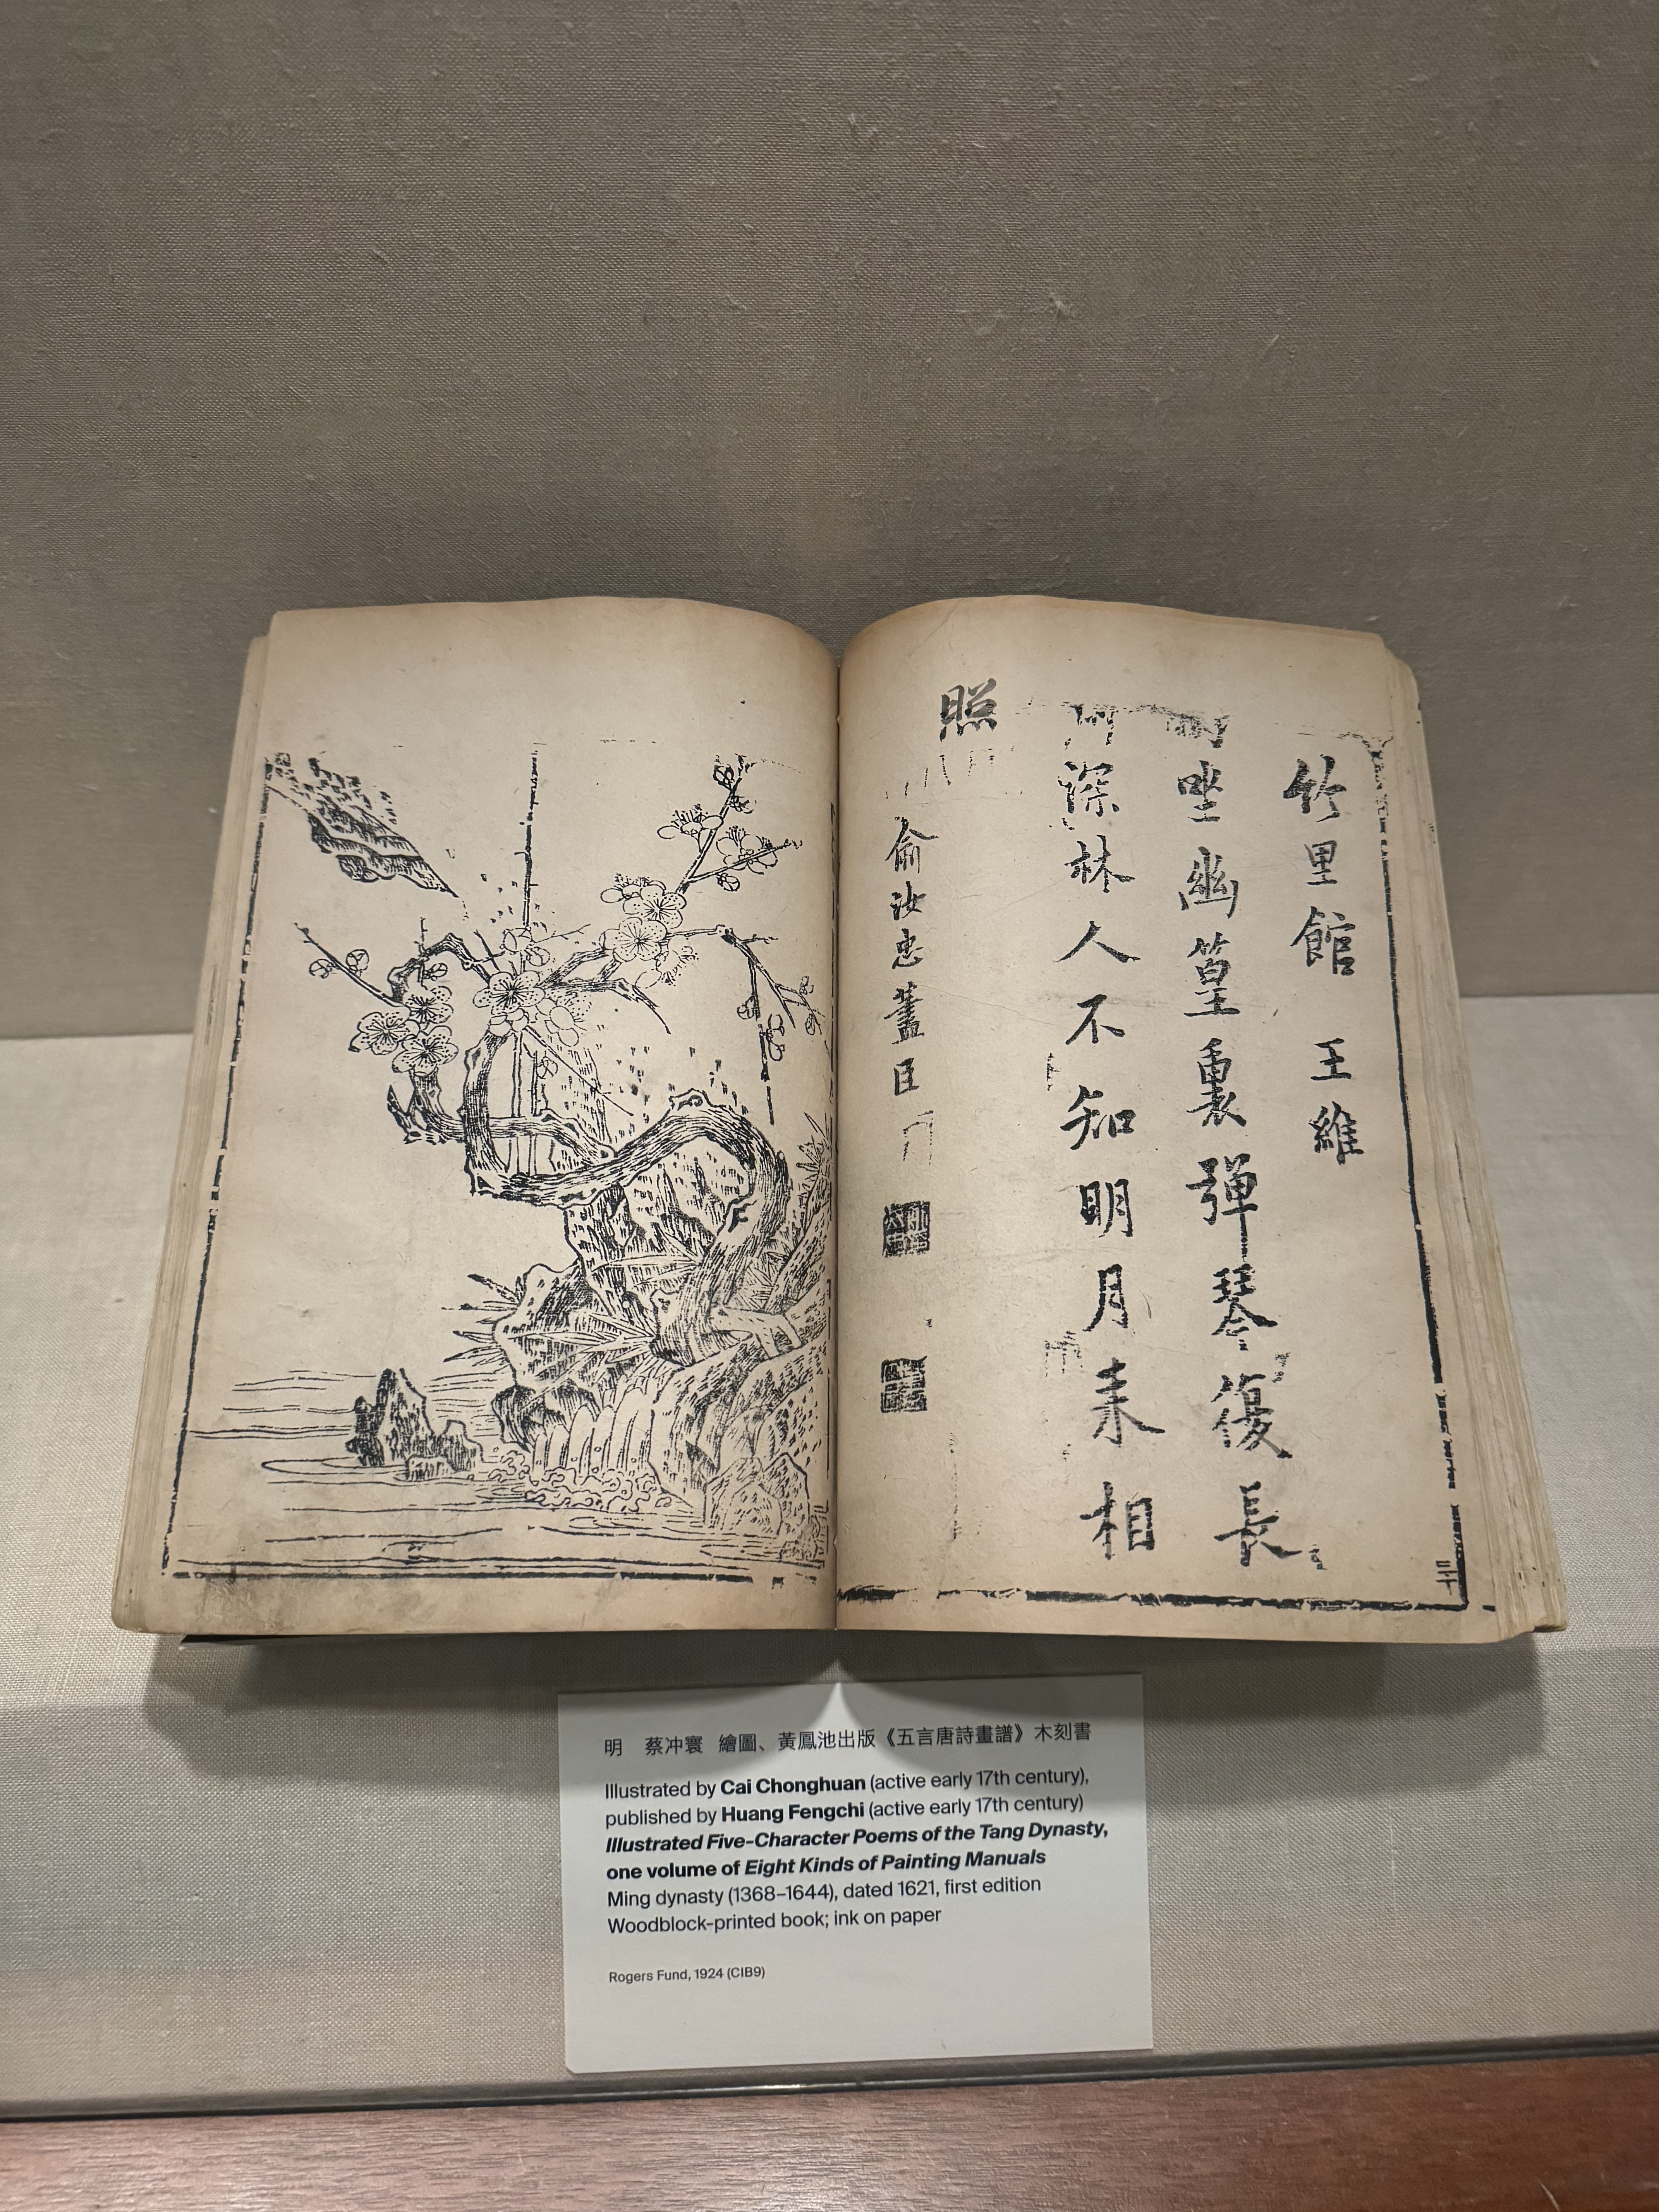 竹里館 王維
坐幽篁裏弾琴復長
深林人不知明月来相
照
俞汝忠藎臣
明 蔡冲寰 繪圖、黃鳳池出版《五言唐詩畫譜》木刻書
Illustrated by Cai Chonghuan (active early 17th century),
published by Huang Fengchi (active early 17th century)
Illustrated Five-Character Poems of the Tang Dynasty,
one volume of Eight Kinds of Painting Manuals
Ming dynasty (1368–1644), dated 1621, first edition
Woodblock-printed book; ink on paper
Rogers Fund, 1924 (CIB9)